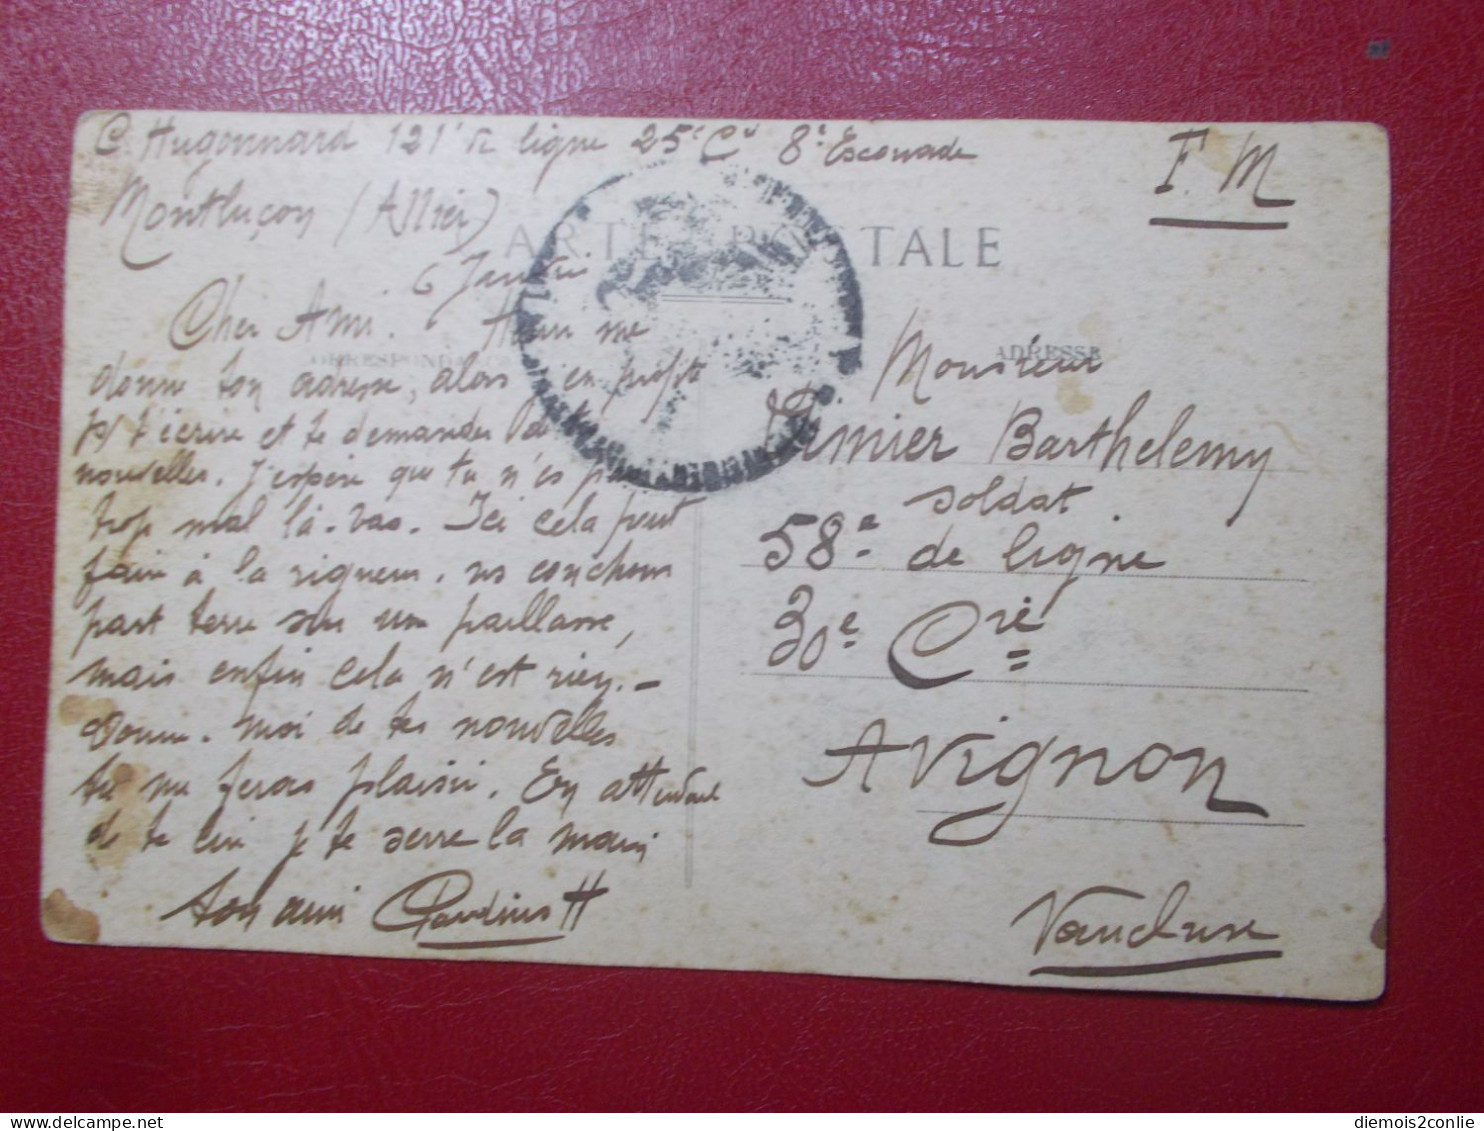 C. Hugonnard 121e de ligne 25e Cie 8e Escouade
Montluçon (Allier)
F. M
CARTE POSTALE
6 Janvier
Cher Ami. me
CORRESPONDANCE
ADRESSE
donne ton adresse, alors j'en profite
pr t'écrire et te demander de
nouvelles. J'espère que tu n'es pas
trop mal là-bas. Ici cela peut
faire à la rigueur. ns couchons
part terre sur une paillasse,
mais enfin cela n'est rien. -
Donne-moi de tes nouvelles
tu me feras plaisir. En attendant
de te lire je te serre la main
ton ami Claudius H
Monsieur
Barthelemy
soldat
58e de ligne
30e Cie
Avignon
Vaucluse
diemois2conlie